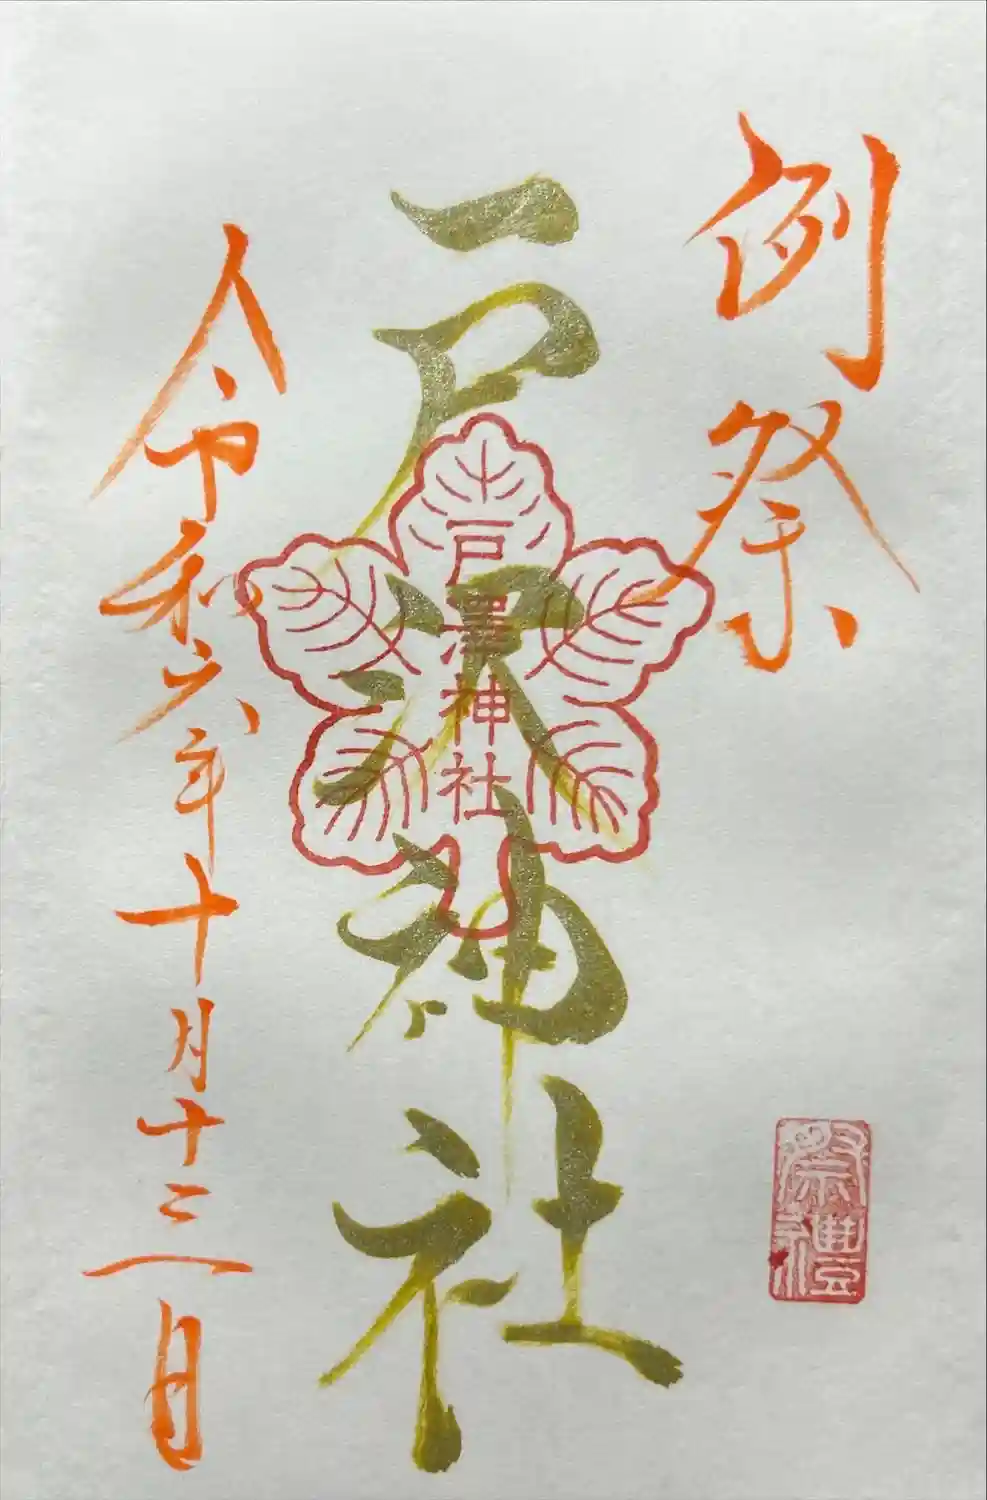 例祭
戸沢神社
戸澤神社
令和六年十月十三日
祭禮